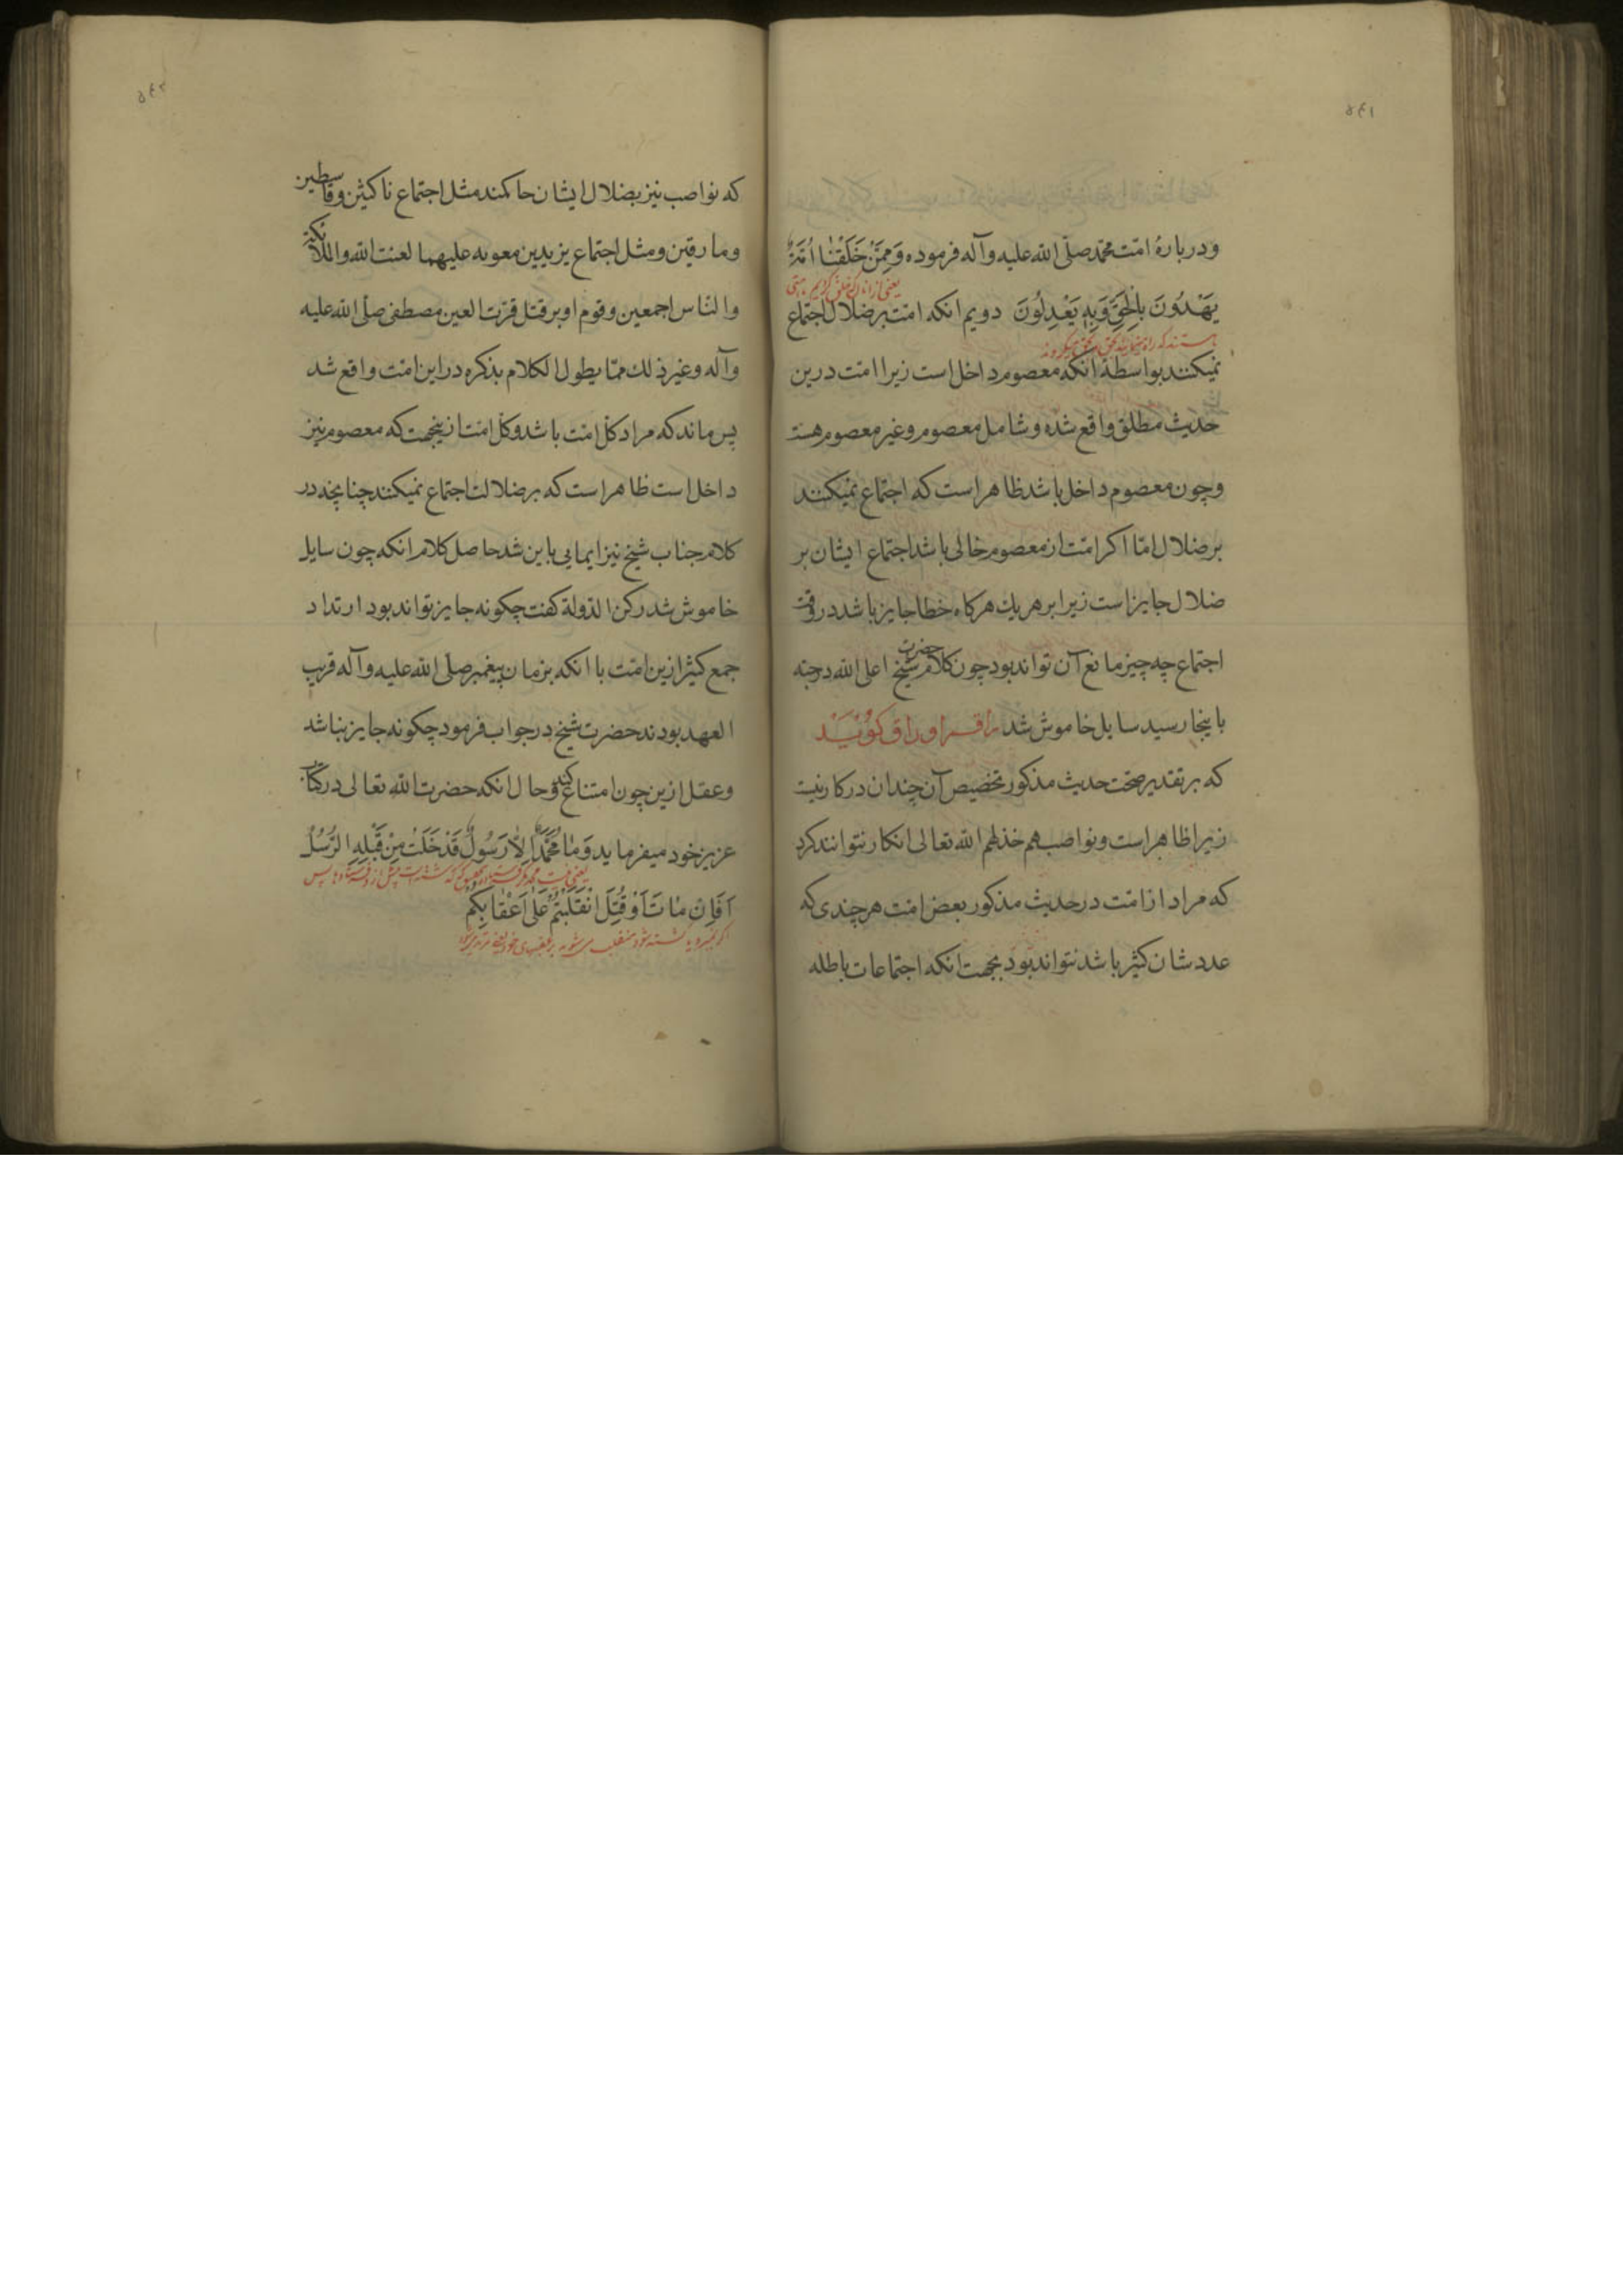 ۵۴۱
ودربارهٔ امّت محمّد صلّی الله علیه وآله فرموده وَمِمَّنْ خَلَقْنٰا اُمَّةٌ
یعنی از انان که خلق کردیم امتی
یَهْدُونَ بِالْحَقِّ وَبِهِ یَعْدِلُونَ دویم انکه امّت بر ضلال اجتماع
هستند که راه مینمایند بحق و بحق میکروند
نمیکنند بواسطهٔ آنکه معصوم داخل است زیرا امت درین
حدیث مطلق واقع شده وشامل معصوم وغیر معصوم هست
وچون معصوم داخل باشد ظاهر است که اجتماع نمیکنند
بر ضلال امّا اکر امّت از معصوم خالی باشد اجتماع ایشان بر
ضلال جایز است زیرا بر هر یك هرکاه خطا جایز باشد در وقت
اجتماع چه چیز مانع آن تواند بود چون کلام حضرت شیخ اعلی الله درجته
باینجا رسید سایل خاموش شد راقم اوراق کوید
که بر تقدیر صحّت حدیث مذکور تخصیص آن چندان در کار نیست
زیرا ظاهر است ونواصب هم خذلهم الله تعالی انکار نتوانند کرد
که مراد از امّت در حدیث مذکور بعض امّت هر چندی که
عدد شان کثیر باشد نتواند بود بجهت انکه اجتماعات باطله
۵۴۲
که نواصب نیز بضلال ایشان حاکمند مثل اجتماع ناکثین وقاسطین
ومارقین ومثل اجتماع یزید بن معویه علیهما لعنت الله والملائکة
والنّاس اجمعین وقوم او بر قتل قرّت العین مصطفی صلّی الله علیه
وآله وغیر ذلك ممّا یطول الکلام بذکره در این امّت واقع شد
پس ماند که مراد کلّ امّت باشد وکلّ امّت ازینجهت که معصوم نیز
داخل است ظاهر است که بر ضلالت اجتماع نمیکنند چنانچه در
کلام جناب شیخ نیز ایمایی باین شد حاصل کلام انکه چون سایل
خاموش شد رکن الدّولة کفت چکونه جایز تواند بود ارتداد
جمع کثیر ازین امّت با انکه بزمان پیغمبر صلّی الله علیه وآله قریب
العهد بودند حضرت شیخ در جواب فرمود چکونه جایز نباشد
وعقل ازین چون امتناع کند وحال انکه حضرت الله تعالی در کتاب
عزیز خود میفرماید وَمٰا مُحَمَّدٌ اِلاّٰ رَسُولٌ قَدْ خَلَتْ مِنْ قَبْلِهِ الرُّسُلُ
یعنی نیست محمد مکر فرستاده که کذشته است پیش از او فرستادها پس
اَفَاِنْ مٰاتَ اَوْ قُتِلَ انْقَلَبْتُمْ عَلٰی اَعْقٰابِکُمْ
اکر بمیرد یا کشته شود منقلب می‌شوید بر عقبهای خود یعنی مرتد می‌شوید